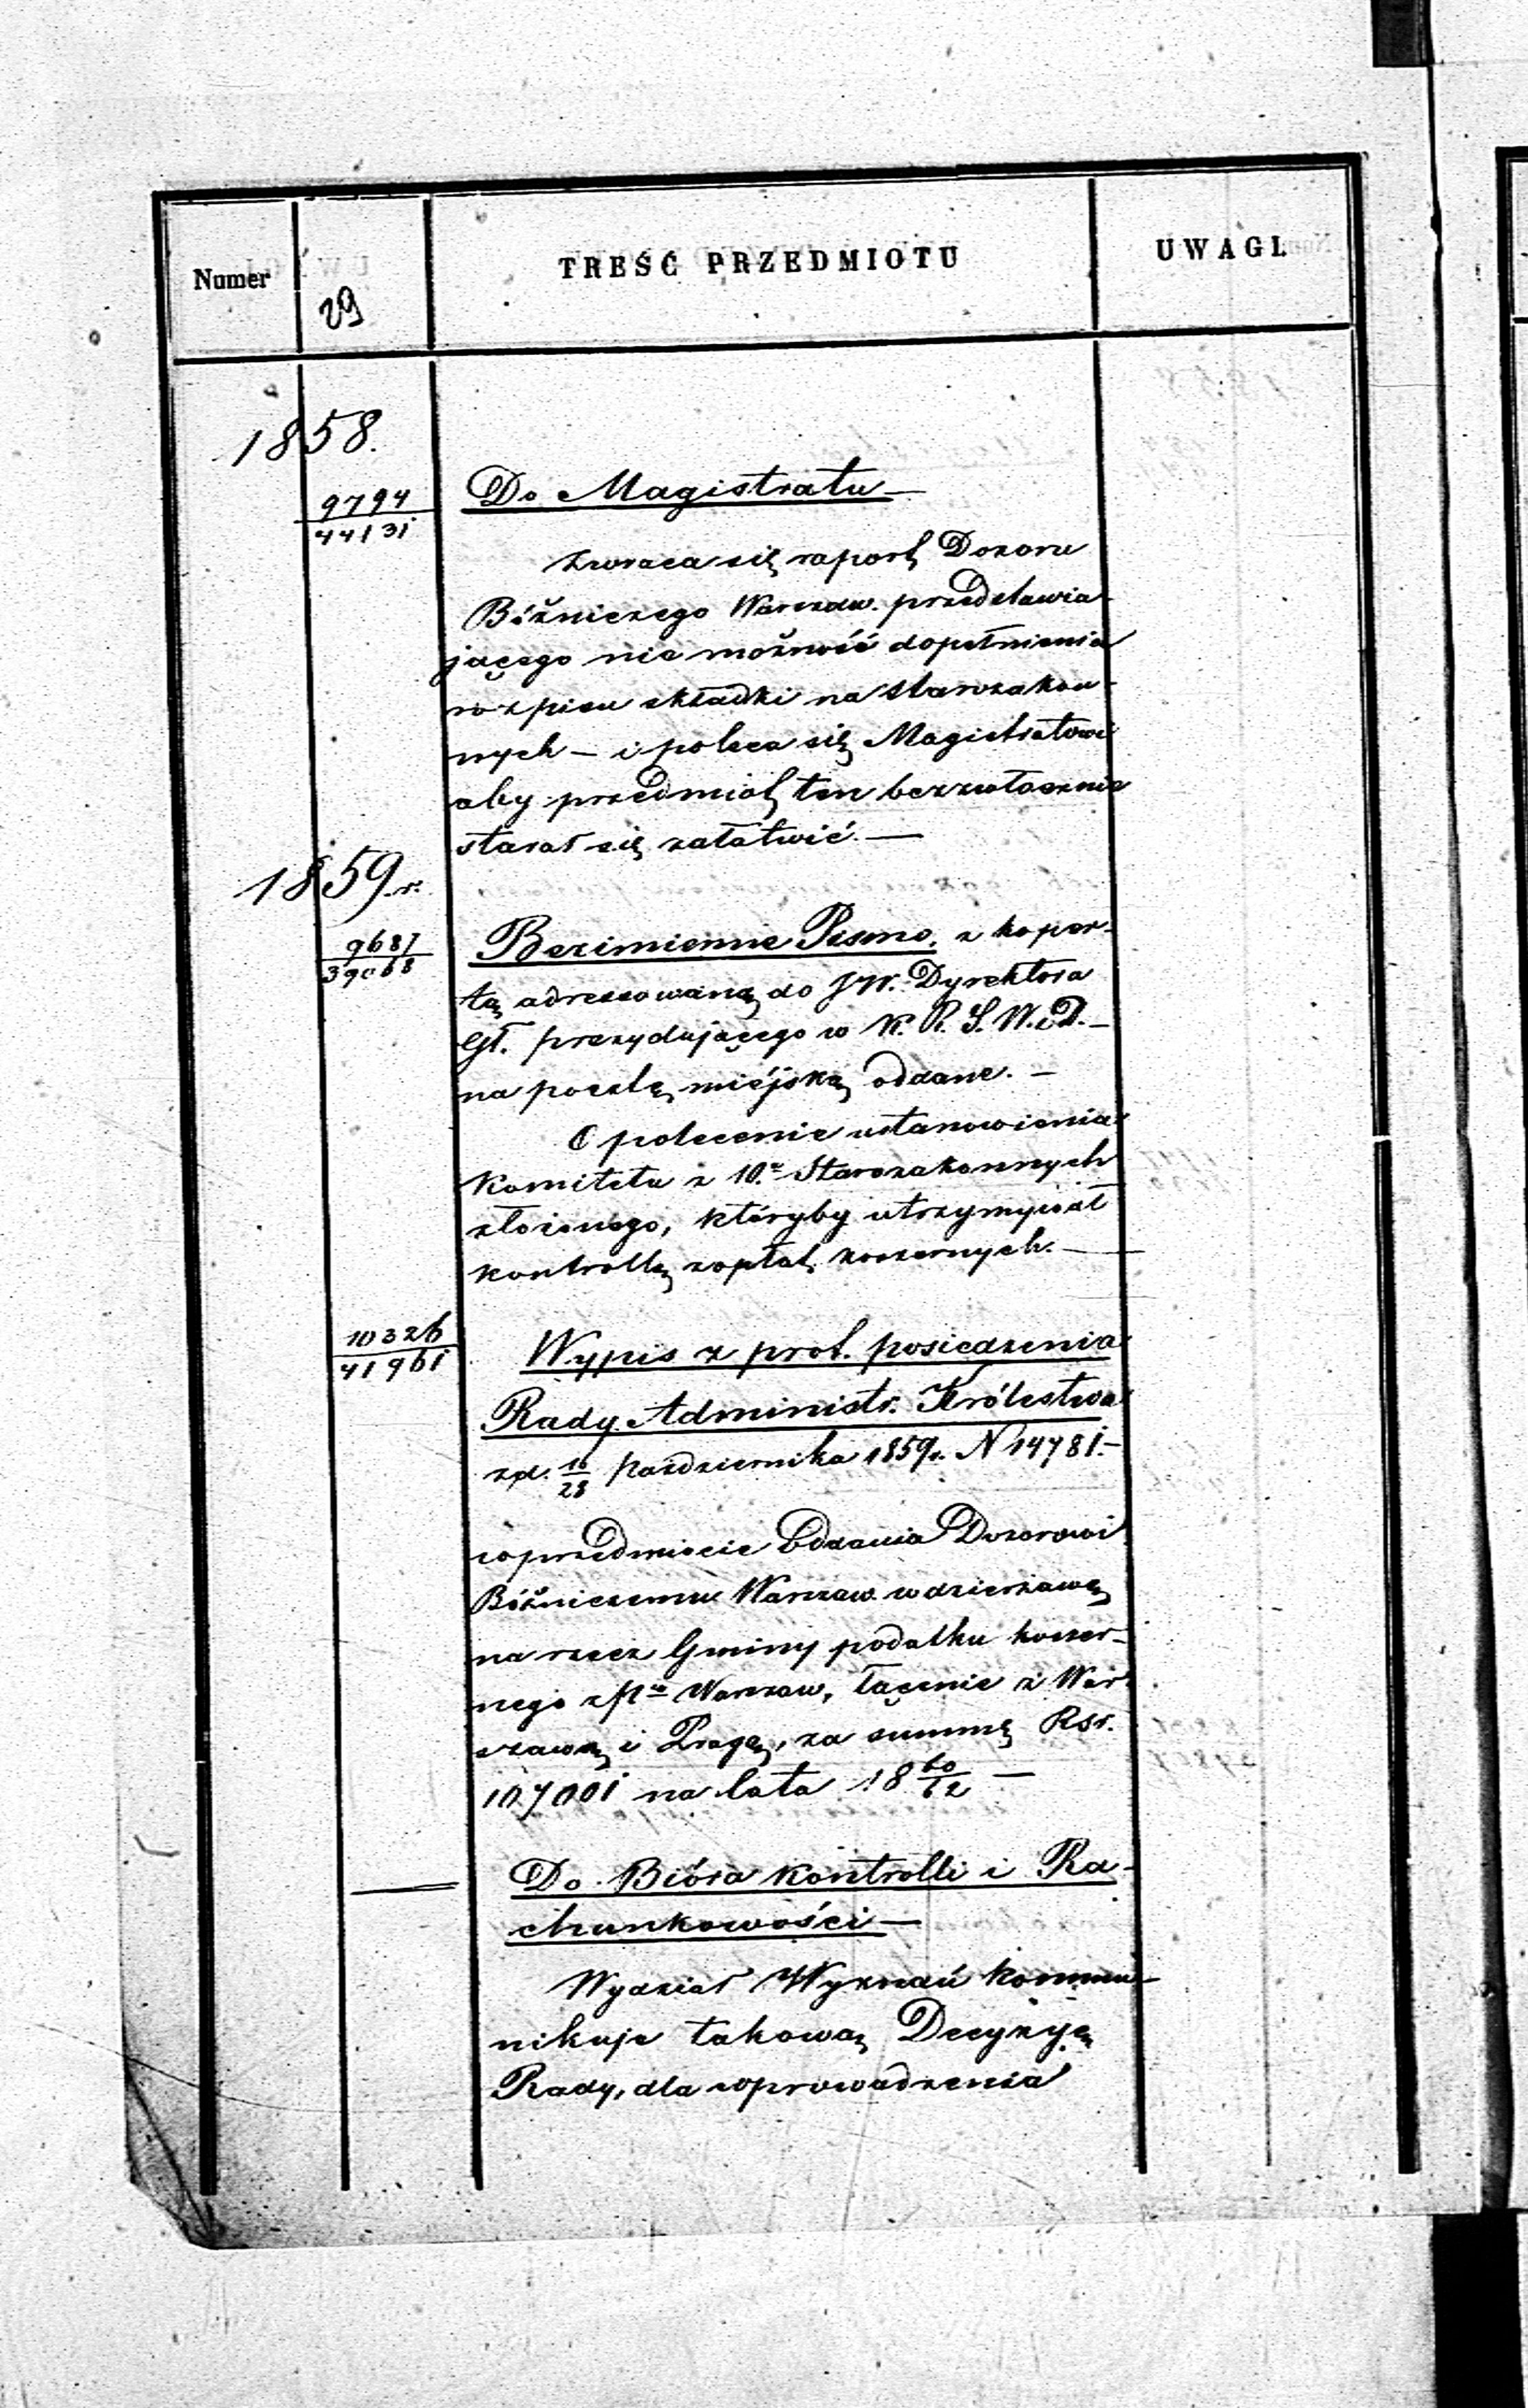 Numer
29
TREŚĆ PRZEDMIOTU
UWAGI.
1858.
9794
44131
Do Magistratu —
Zwraca się raport Dozoru
Bóżniczego Warszaw. przedstawia-
jącego nie możność dopełnienia
rozpisu składki na starozakon-
nych — i poleca się Magistratowi
aby przedmiot ten bezzwłocznie
starał się załatwić. —
1859.r.
9687
39068
Bezimienne Pismo, z koper-
tą adressowaną do JW. Dyrektora
Gł. prezydującego w K. R. S. W. i D. —
na pocztę miéjską oddane. —
O polecenie ustanowienia
Komitetu z 10.u Starozakonnych
złożonego, któryby utrzymywał
kontrollę zopłat koszernych. —
10326
41961
Wypis z prot. posiedzenia
Rady Administr. Królestwa
z d. 16/28 Października 1859r. N 14781. —
w przedmiocie Oddania Dozorowi
Bóżniczemu Warszaw. w dzierżawę
na rzecz Gminy podatku koszer-
nego z Ptu Warszaw, łącznie z War-
szawą i Pragą, za summę Rsr.
107001 na lata 18 60/62 —
Do Bióra Kontrolli i Ra-
chunkowości —
Wydział Wyznań kommu-
nikuje takową Decyzyę
Rady, dla wprowadzenia